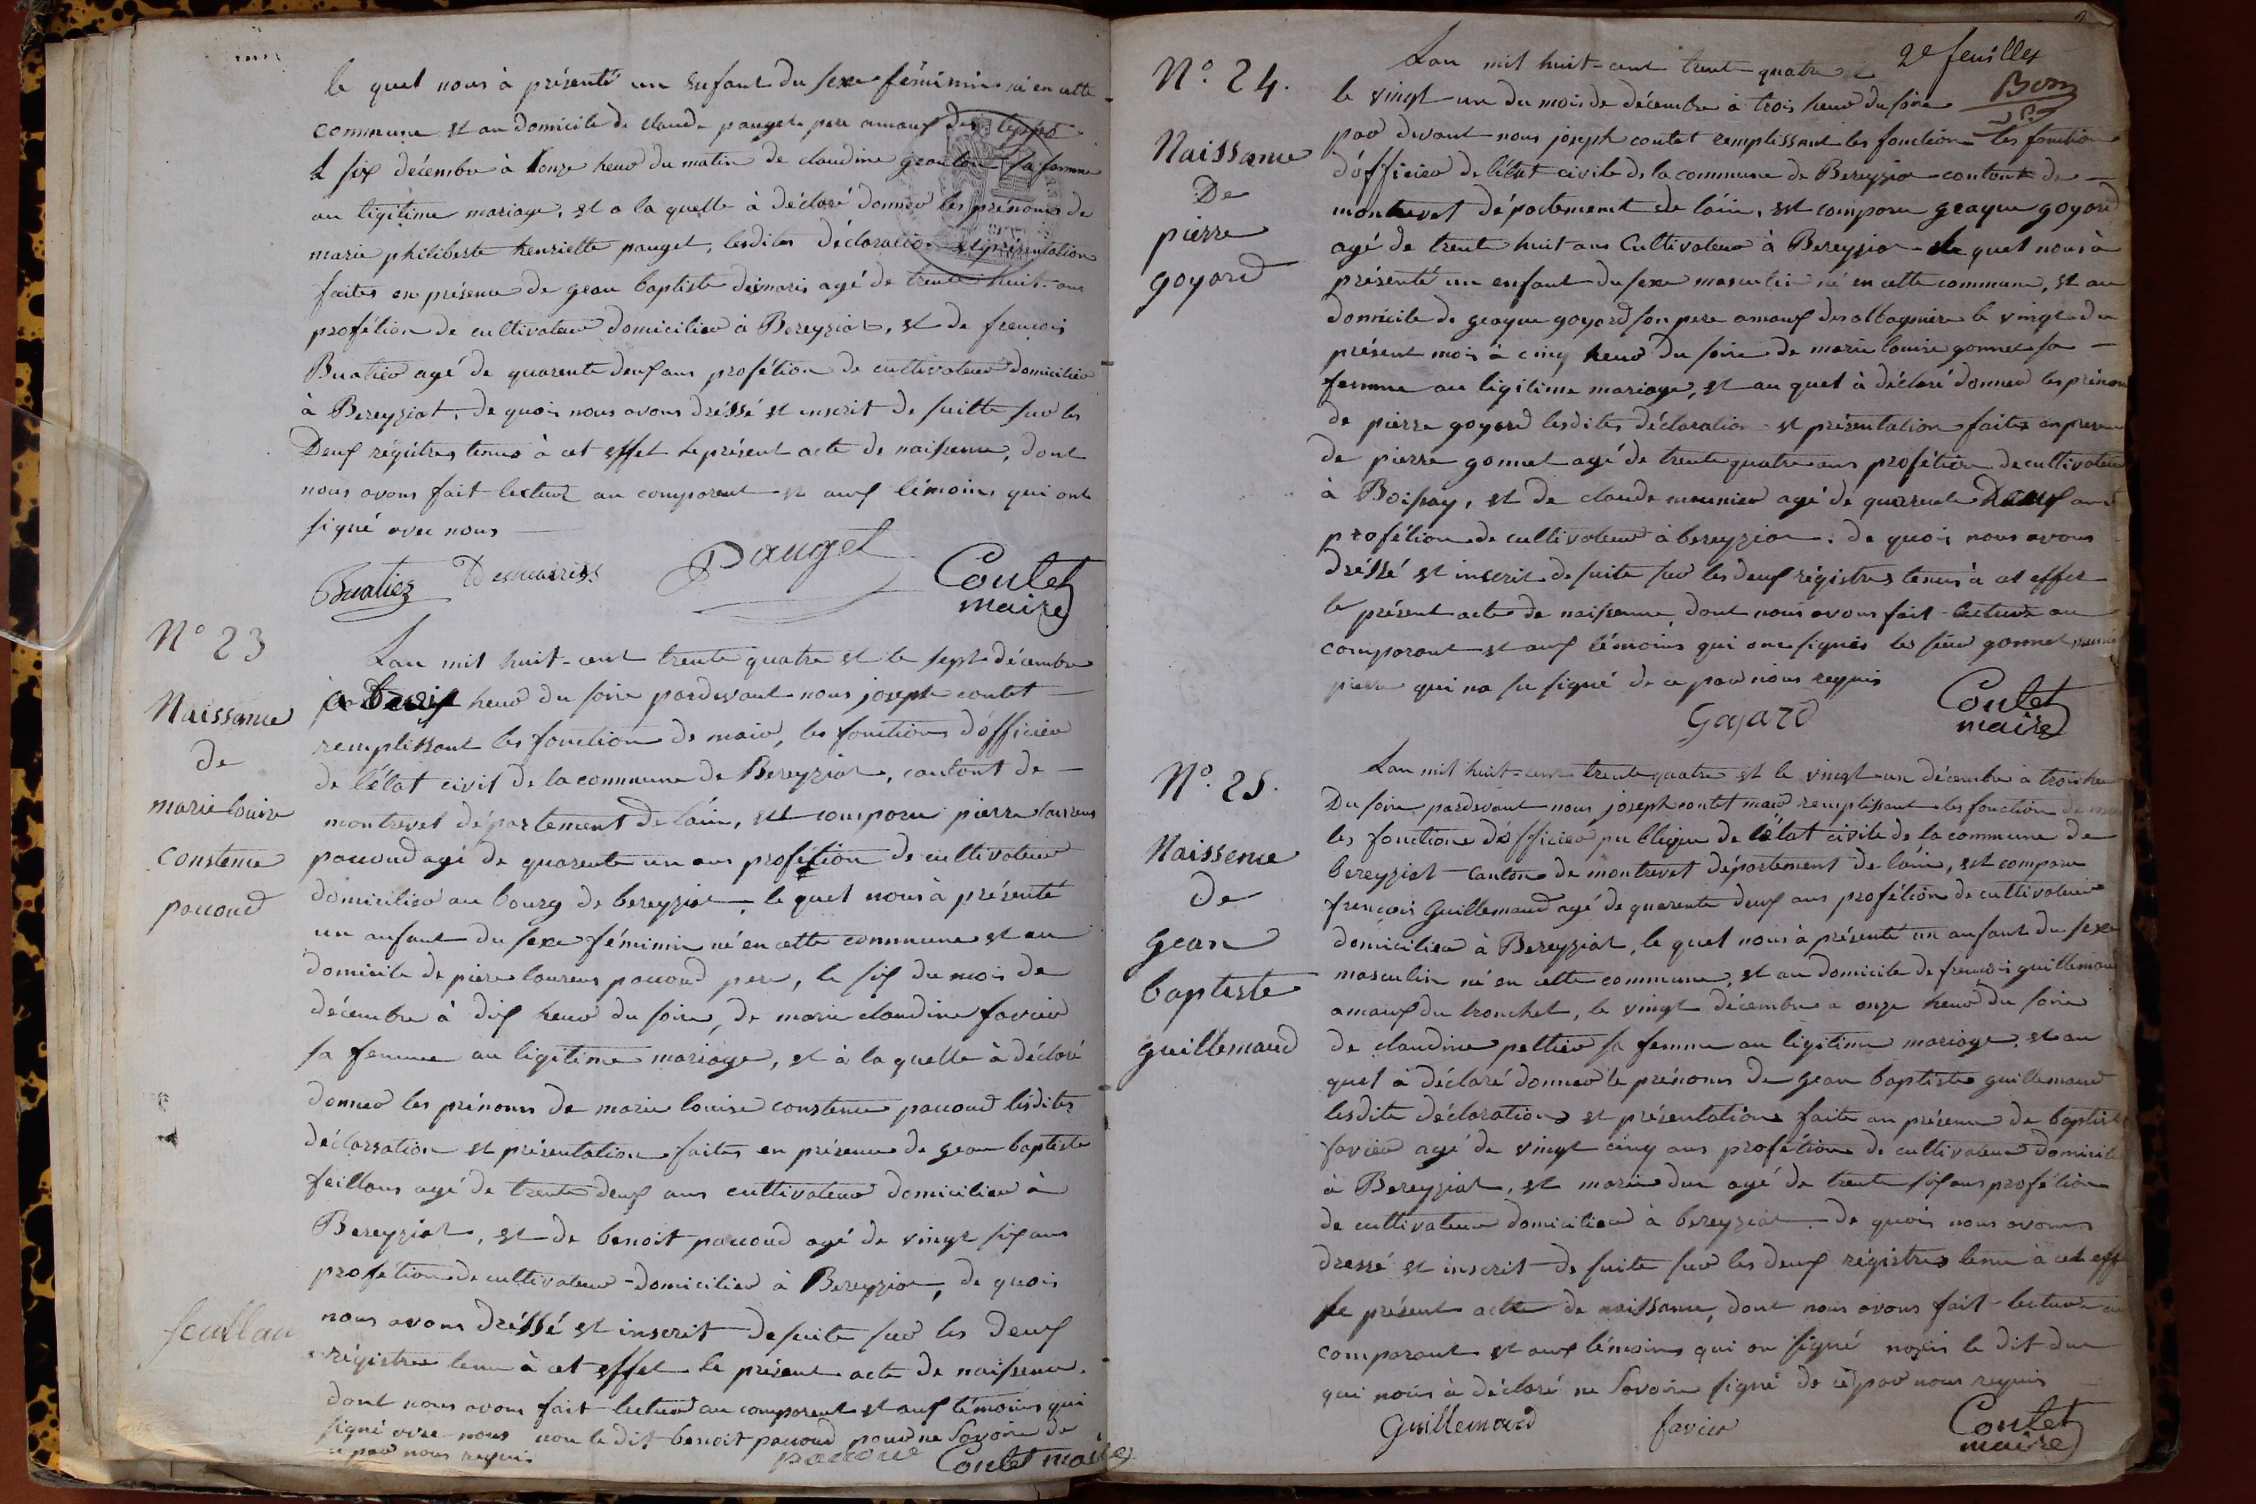 le quel nous à présenté un enfant du sexe féminin né en cette
commune et au domicile de claude pauget pere amauf des
le six décembre à honze heur du matin de claudine sa femme
au ligitime mariage, et a la quelle à déclaré donner les prénoms de
marie philiberte henriette pauget, lesdites déclaration et présentation
faites en présence de gean baptiste démaris agé de trente huit ans
profétion de cultivateur domicilier à Bereyziat, et de frencois
Buatier agé de quarente deux ans profétion de cultivateur domicilier
à Bereyziat, de quois nous avons dréssé et inscrit de suitte sur les
Deux régistres tenus à cet effet le présent acte de naissence, dont
nous avons fait lecture au comparent et aux témoins qui ont
signé avec nous
Buatier Desmairiss Pauget Coutet
maire
N° 23
Naissance
de
marie louise
constence
pacoud
Lan mil huit-cent trente quatre et le sept décembre
heur du soire pardevant nous joseph coutet
remplissant les fonction de mair, les fonctions d'officier
de l'état civil de la commune de Bereyziat, cantont de
montrevel département de lain, est comparu pierre laurens
pacoud agé de quarente un ans profétion de cultivateur
domicilier au bourg de bereyziat, le quel nous à présenté
un anfant du sexe féminin né en cette commune et au
domicile de piere laurens pacoud pere, le six du mois de
décembre à dix heur du soire, de marie claudine favier
sa femme au ligitime mariage, et à la quelle à déclaré
donner les prénoms de marie louise constence pacoud lesdites
déclarsation et présentation faites en présence de gean baptiste
feillans agé de trente deux ans cultivateur domicilier à
Bereyziat, et de benoit pacoud agé de vingt six ans
profétion de cultivateur domicilier à Bereyziat, de quois
nous avons dréssé et inscrit de suite sur les deux
régistre tenu à cet effet le présent acte de naissence.
dont nous avons fait lecture au comparent et aux témoins qui
signé avec nous non le dit benoit pacoud pour ne savoire de
ce par nous requis
pacoud Coutet maire
N° 24.
Naissance
De
pierre
goyard
2e feuillet
Lan mil huit-cent trente quatre et
le vingt un du mois de décembre à trois heur du soire
par devant nous joseph coutet remplissant les fonction les fonction
d'officier de l'état civile de la commune de Bereyziat contont de
montrevel département de lain, est comparu geaque goyard
agé de trente huit ans Cultivateur à Bereyziat le quel nous à
présenté un enfant du sexe masculin né en cette commune, et au
domicile de geaque goyard son pere amauf des le vingt du
présent mois à cinq heur du soire de marie louise gonnet sa
femme au ligitime mariage, et au quel à déclaré donner les prénom
de pierre goyard lesdites déclaration et présentation faites en presence
de pierre gonnet agé de trente quatre ans profétion de cultivateur
à Boissay, et de claude meunier agé de quarente Deux ans
profétion de cultivateur à bereyziat. de quois nous avons
dréssé et inscrit de suite sur les deux régistres tenus à cet effet
le présent acte de naissenne, dont nous avons fait lecture au
comparant et aux témoins qui ont signés les sieur gonnet
pierre qui na su signé de ce par nous requis
Goyard
Coutet
maire
N° 25.
Naissence
de
gean
baptiste
guillemaud
Lan mil huit-cent trente quatre et le vingt un décembre a trois heur
Du soire pardevant nous joseph coutet mair remplissant les fonction de
les fonctione d'officier publique de l'état civile de la commune de
bereyziat canton de montrevel département de lain, est comparu
françois Guillemaud agé de quarente deux ans profétion de cultivateur
domicilier à Bereyziat, le quel nous à présenté un anfant du sexe
masculin né en cette commune, et au domicile de frencois guillemaud
amauf du tronchet, le vingt décembre a onze heur du soire
de claudine peltier sa femme au ligitime mariage, et au
quel à déclaré donner le prénoms de gean baptiste guillemaud
lesdite déclarations et présentations faite au présence de baptiste
favier agé de vingt cinq ans profétion de cultivateur domicilié
à Bereyziat, et marie duc agé de trente six ans profétion
de cultivateur domicilier à bereyziat. de quois nous avons
dressé et inscrit de suite sur les deux régistres tenu à cet effet
le présent acte de naissance, dont nous avons fait lecture au
comparant et aux témoins qui on signé le dit duc
qui nous à déclaré ne savoire signé de ce par nous requis
Guillemaud favier Coutet
maire